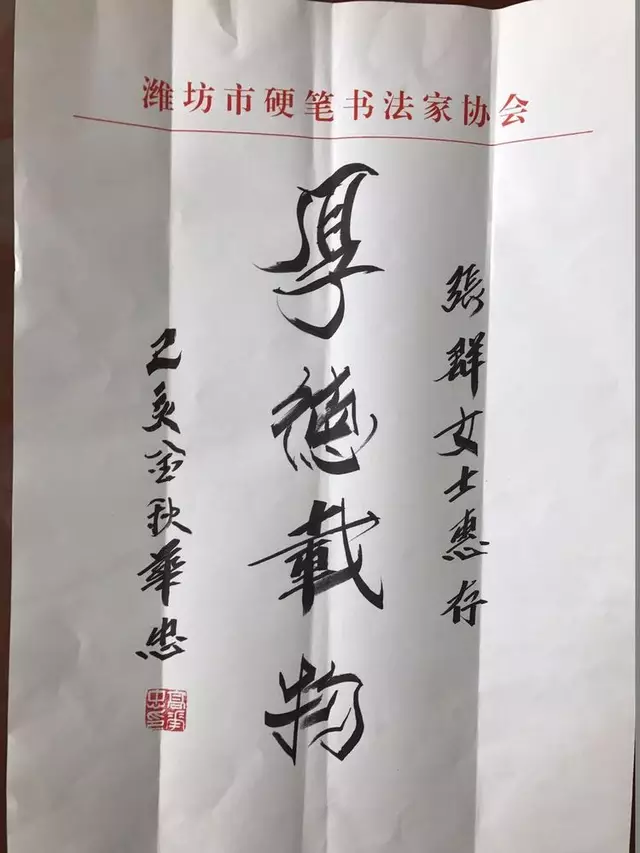 潍坊市硬笔书法家协会
張群女士惠存
厚德載物
己亥金秋華忠